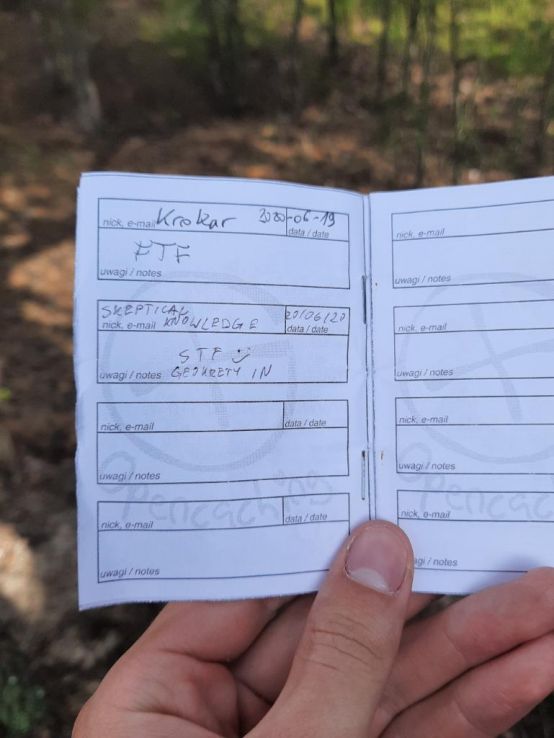 Krokar 2020-06-19
nick, e-mail data / date
FTF
uwagi / notes
SKEPTICAL
KNOWLEDGE 20/06/20
nick, e-mail data / date
STF
GEOKRETY IN
uwagi / notes
nick, e-mail data / date
uwagi / notes
nick, e-mail data / date
uwagi / notes
Opencaching
nick, e-mail
uwagi / notes
nick, e-mail
uwagi / notes
nick, e-mail
uwagi / notes
nick, e-mail
uwagi / notes